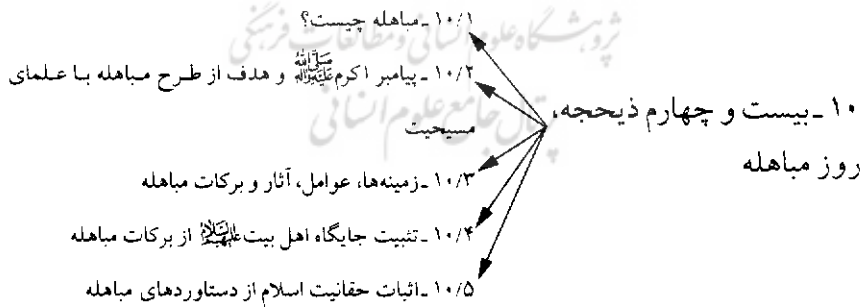 ۱۰ـ بیست و چهارم ذیحجه،
روز مباهله
۱۰/۱ـ مباهله چیست؟
۱۰/۲ـ پیامبر اکرم ﷺ و هدف از طرح مباهله با علمای
مسیحیت
۱۰/۳ـ زمینه‌ها، عوامل، آثار و برکات مباهله
۱۰/۴ـ تثبیت جایگاه اهل بیت علیهم‌السلام از برکات مباهله
۱۰/۵ـ اثبات حقانیت اسلام از دستاوردهای مباهله
پژوهشگاه علوم انسانی و مطالعات فرهنگی
پرتال جامع علوم انسانی